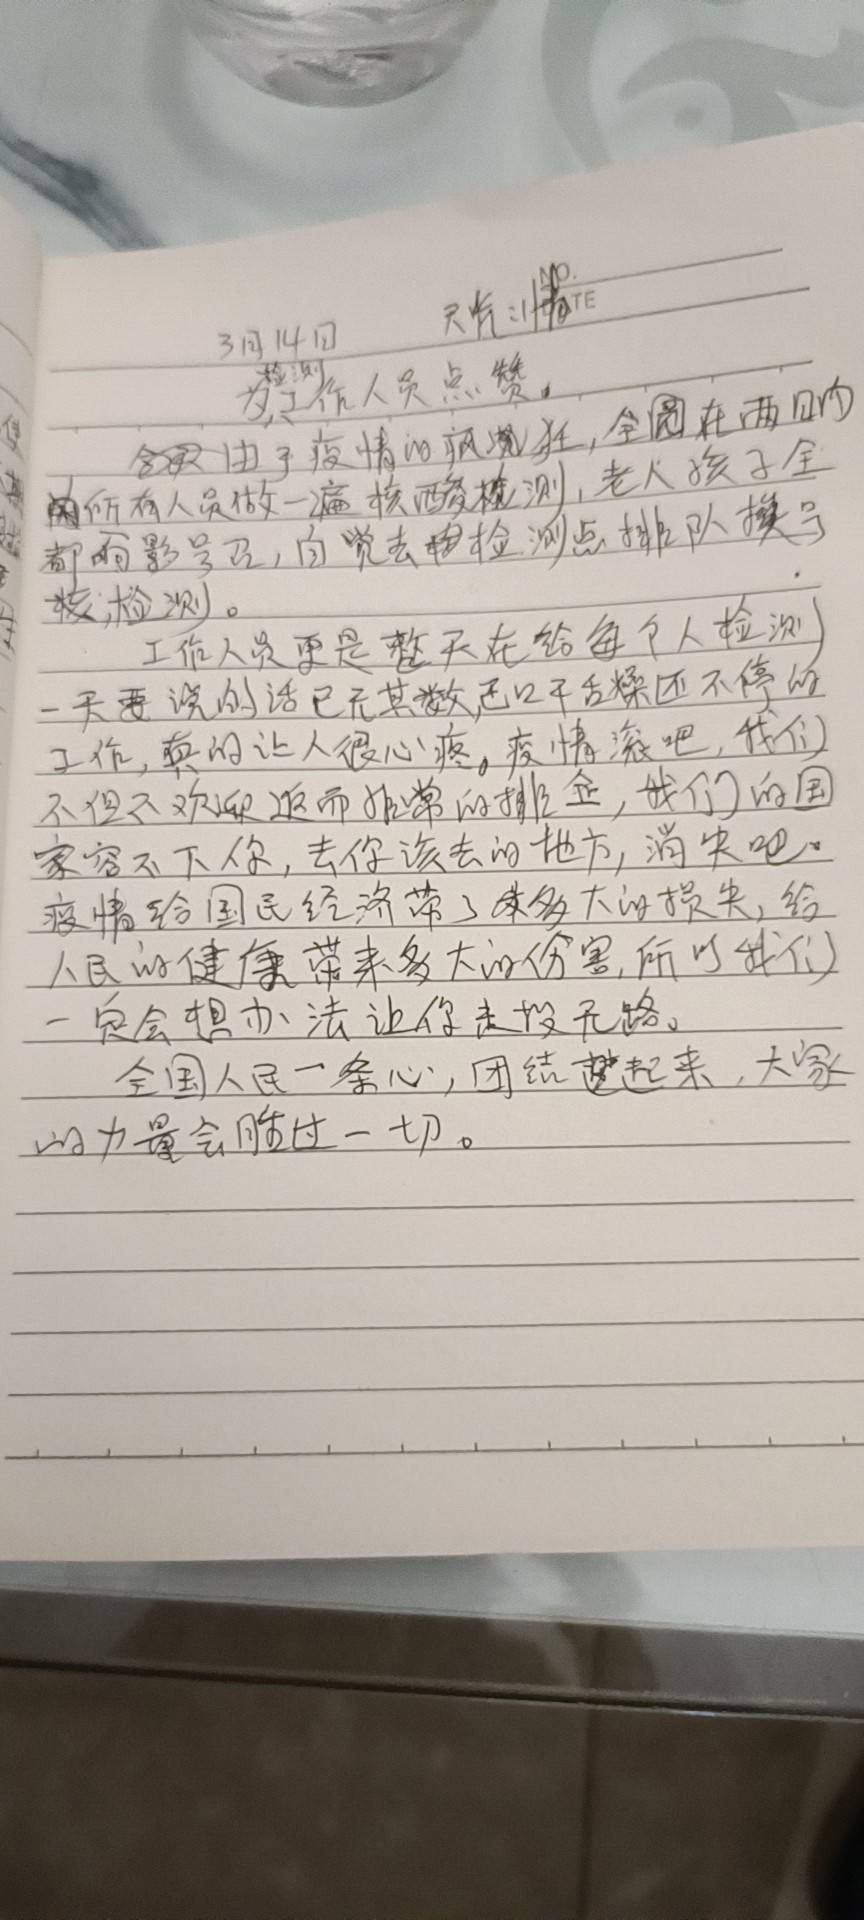 NO.
DATE
3月14日 天气:晴
为检测工作人员点赞。
由于疫情的疯狂,全国在两日内
所有人员做一遍核酸检测,老人孩子全
都响影号召,自觉去检测点排队挨号
核检测。
工作人员更是整天在给每个人检测
一天要说的话已无其数,还口干舌燥还不停的
工作,真的让人很心疼。疫情滚吧,我们
不但不欢迎返而非常的排企,我们的国
家容不下你,去你该去的地方,消失吧。
疫情给国民经济带了来多大的损失,给
人民的健康带来多大的伤害,所以我们
一定会想办法让你走投无路。
全国人民一条心,团结起来,大家
的力量会胜过一切。